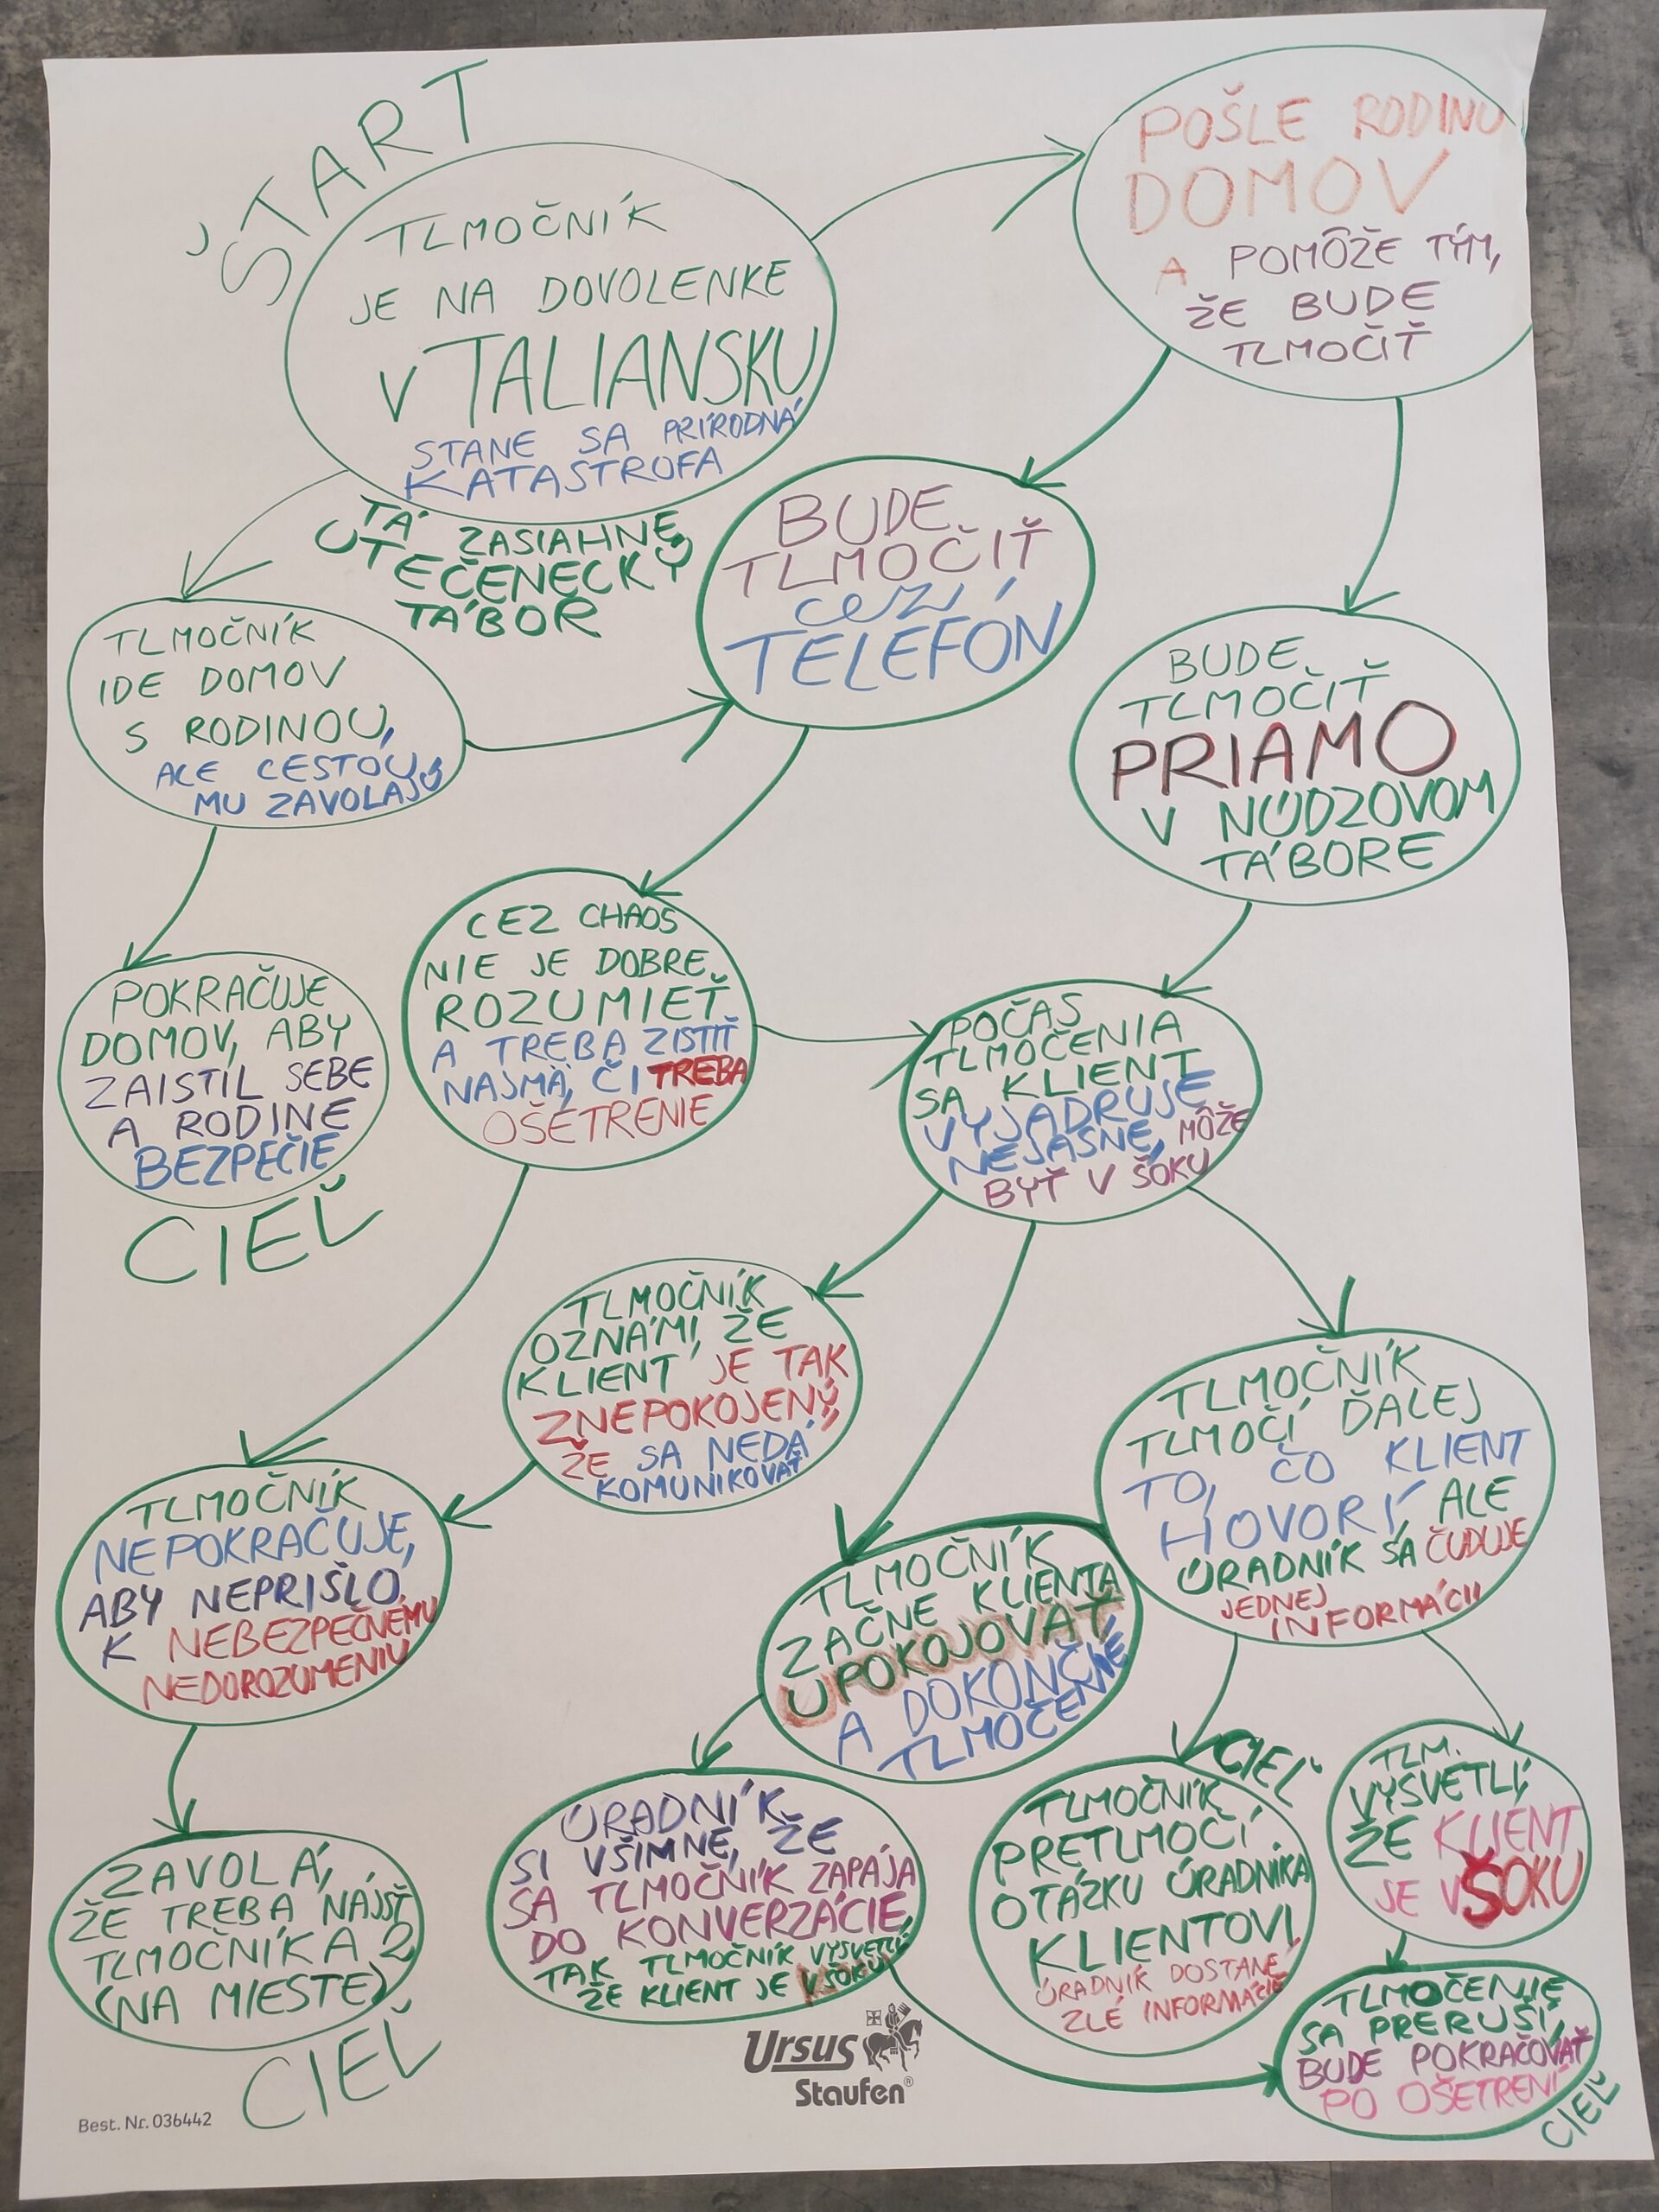 START
TLMOČNÍK
JE NA DOVOLENKE
V TALIANSKU
STANE SA PRÍRODNÁ
KATASTROFA
TÁ ZASIAHNE
UTEČENECKÝ
TÁBOR
POŠLE RODINU
DOMOV
A POMÔŽE TÝM,
ŽE BUDE
TLMOČIŤ
BUDE
TLMOČIŤ
CEZ
TELEFÓN
TLMOČNÍK
IDE DOMOV
S RODINOU,
ALE CESTOU
MU ZAVOLAJÚ
BUDE
TLMOČIŤ
PRIAMO
V NÚDZOVOM
TÁBORE
POKRAČUJE
DOMOV, ABY
ZAISTIL SEBE
A RODINE
BEZPEČIE
CIEĽ
CEZ CHAOS
NIE JE DOBRE
ROZUMIEŤ
A TREBA ZISTIŤ
NAJMÄ, ČI TREBA
OŠETRENIE
POČAS
TLMOČENIA
SA KLIENT
VYJADRUJE
NEJASNE, MÔŽE
BYŤ V ŠOKU
TLMOČNÍK
OZNÁMI, ŽE
KLIENT JE TAK
ZNEPOKOJENÝ,
ŽE SA NEDÁ
KOMUNIKOVAŤ
TLMOČNÍK
TLMOČÍ ĎALEJ
TO, ČO KLIENT
HOVORÍ, ALE
ÚRADNÍK SA ČUDUJE
JEDNEJ
INFORMÁCII
TLMOČNÍK
NEPOKRAČUJE,
ABY NEPRIŠLO
K NEBEZPEČNÉMU
NEDOROZUMENIU
TLMOČNÍK
ZAČNE KLIENTA
UPOKOJOVAŤ
A DOKONČÍ
TLMOČENIE
ZAVOLÁ,
ŽE TREBA NÁJSŤ
TLMOČNÍKA 2
(NA MIESTE)
CIEĽ
ÚRADNÍK
SI VŠIMNE, ŽE
SA TLMOČNÍK ZAPÁJA
DO KONVERZÁCIE,
TAK TLMOČNÍK VYSVETLÍ,
ŽE KLIENT JE V ŠOKU
CIEĽ
TLMOČNÍK
PRETLMOČÍ
OTÁZKU ÚRADNÍKA
KLIENTOVI,
ÚRADNÍK DOSTANE
ZLÉ INFORMÁCIE
TLM.
VYSVETLÍ,
ŽE KLIENT
JE V ŠOKU
TLMOČENIE
SA PRERUŠÍ,
BUDE POKRAČOVAŤ
PO OŠETRENÍ
CIEĽ
Ursus
Staufen®
Best. Nr. 036442